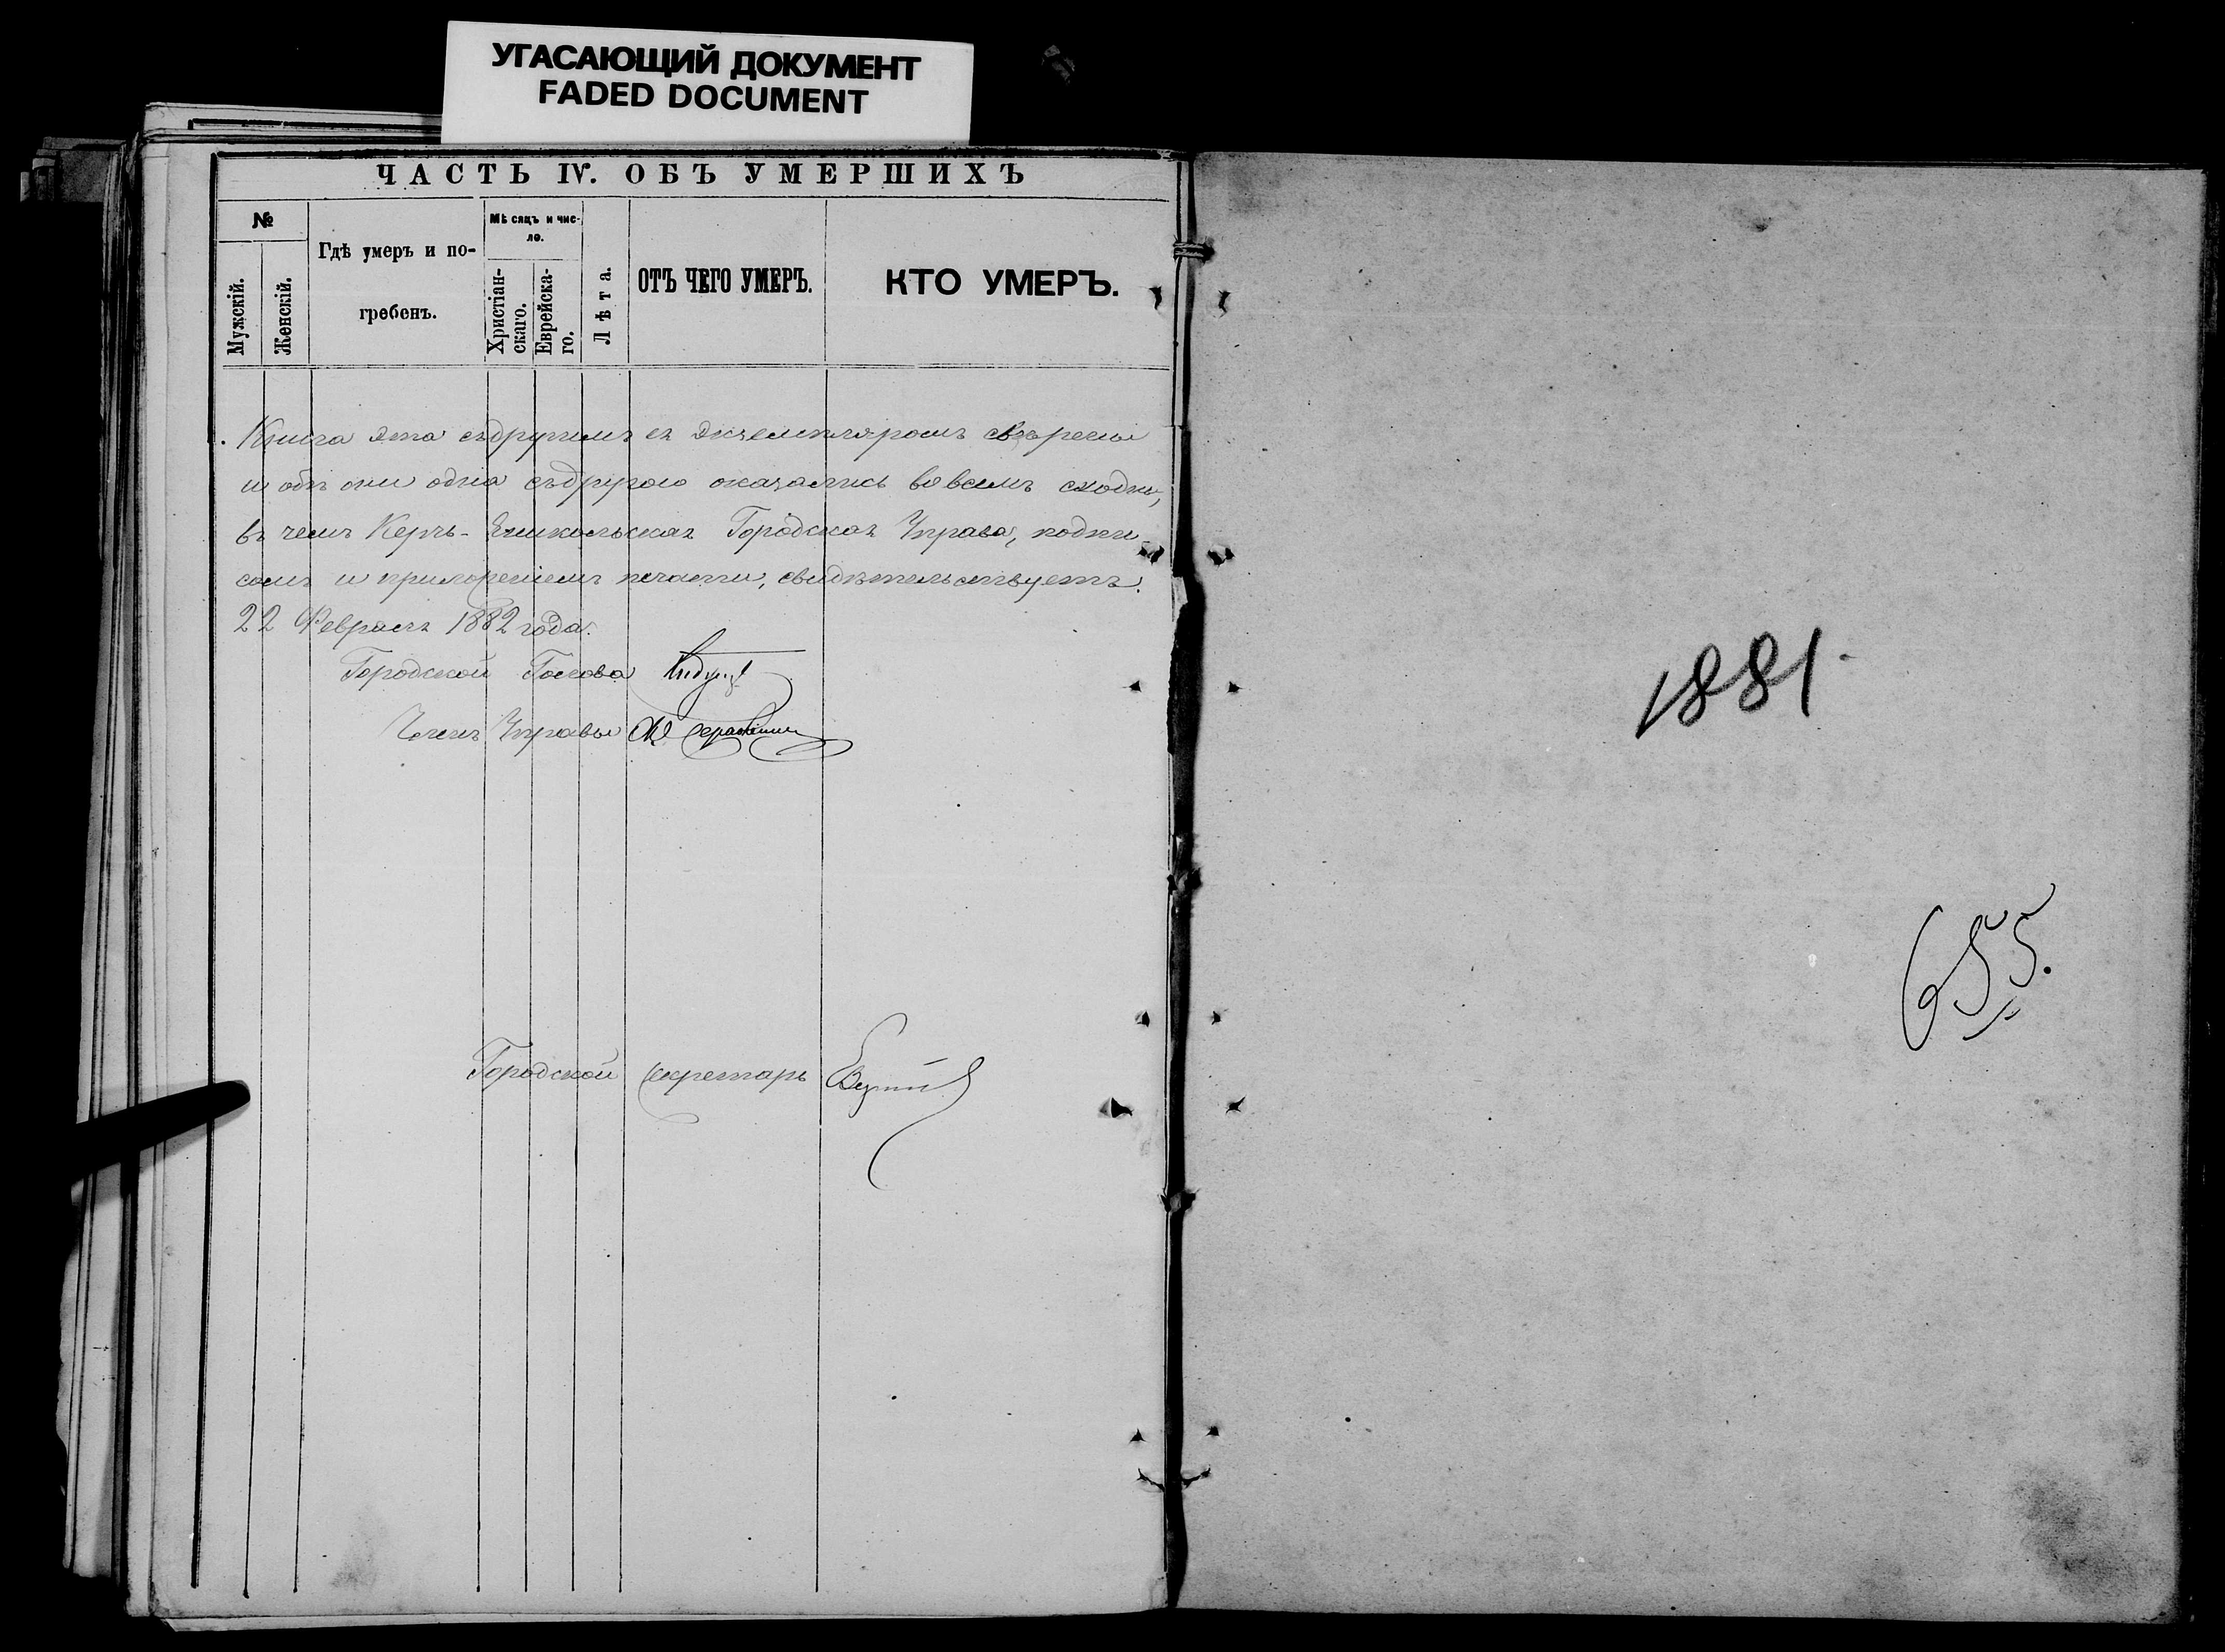 УГАСАЮЩИЙ ДОКУМЕНТ
FADED DOCUMENT
ЧАСТЬ IV. ОБЪ УМЕРШИХЪ
№
Мужскій.
Женскій.
Гдѣ умеръ и по-
гребенъ.
Мѣсяцъ и чис-
ло.
Христіан-
скаго.
Еврейска-
го.
Лѣта.
ОТЪ ЧЕГО УМЕРЪ.
КТО УМЕРЪ.
Книга эта съ другимъ ея экземпляромъ сверены
и обѣ они одна съ другою оказались во всемъ сходны,
въ чемъ Керчь-Еникольская Городская Управа, подпи
сомъ и приложеніемъ печати, свидѣтельствуетъ.
22 Февраля 1882 года.
Городской Голова
Членъ Управы
Городской Секретарь
1881
655.